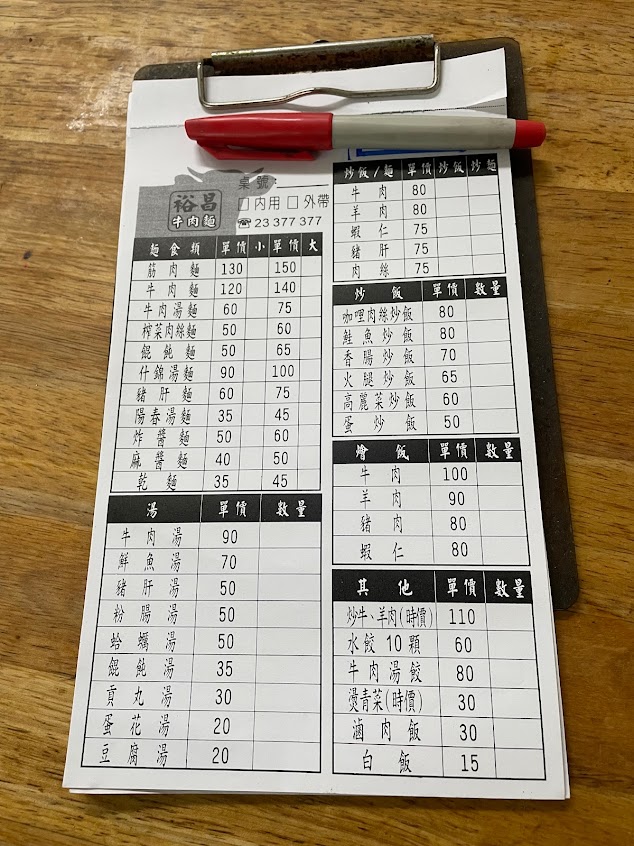 裕昌
牛肉麵
桌號:
□內用 □外帶
☎23 377 377
麵食類 單價 小 單價 大
筋肉麵 130 150
牛肉麵 120 140
牛肉湯麵 60 75
榨菜肉絲麵 50 60
餛飩麵 50 65
什錦湯麵 90 100
豬肝麵 60 75
陽春湯麵 35 45
炸醬麵 50 60
麻醬麵 40 50
乾麵 35 45
湯 單價 數量
牛肉湯 90
鮮魚湯 70
豬肝湯 50
粉腸湯 50
蛤蠣湯 50
餛飩湯 35
貢丸湯 30
蛋花湯 20
豆腐湯 20
炒飯/麵 單價 炒飯 炒麵
牛肉 80
羊肉 80
蝦仁 75
豬肝 75
肉絲 75
炒飯 單價 數量
咖哩肉絲炒飯 80
鮭魚炒飯 80
香腸炒飯 70
火腿炒飯 65
高麗菜炒飯 60
蛋炒飯 50
燴飯 單價 數量
牛肉 100
羊肉 90
豬肉 80
蝦仁 80
其他 單價 數量
炒牛、羊肉(時價) 110
水餃10顆 60
牛肉湯餃 80
燙青菜(時價) 30
滷肉飯 30
白飯 15